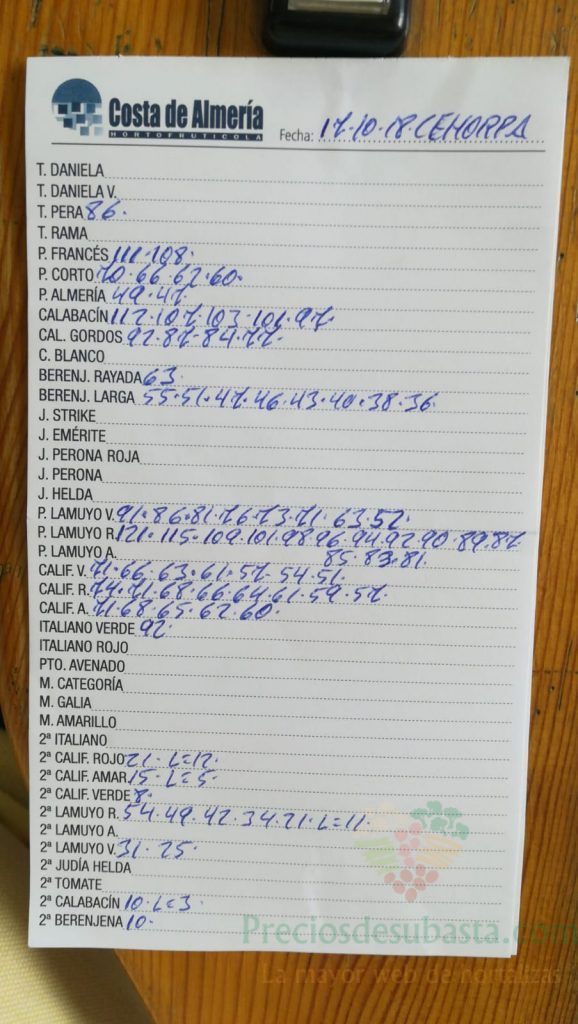 Costa de Almería
HORTOFRUTICOLA
Fecha: 17.10.18. CEHORPA
T. DANIELA
T. DANIELA V.
T. PERA 86.
T. RAMA
P. FRANCÉS 111.108.
P. CORTO 70.66.62.60.
P. ALMERÍA 49.47.
CALABACÍN 112.107.103.101.97.
CAL. GORDOS 92.87.84.77.
C. BLANCO
BERENJ. RAYADA 63.
BERENJ. LARGA 55.51.47.46.43.40.38.36.
J. STRIKE
J. EMÉRITE
J. PERONA ROJA
J. PERONA
J. HELDA
P. LAMUYO V. 91.86.81.76.73.71.63.52.
P. LAMUYO R. 121.115.109.101.98.96.94.92.90.89.87
P. LAMUYO A. 85.83.81.
CALIF. V. 71.66.63.61.57.54.51.
CALIF. R. 74.71.68.66.64.61.59.57.
CALIF. A. 71.68.65.62.60.
ITALIANO VERDE 92.
ITALIANO ROJO
PTO. AVENADO
M. CATEGORÍA
M. GALIA
M. AMARILLO
2ª ITALIANO
2ª CALIF. ROJO 21. L=12.
2ª CALIF. AMAR. 15. L=5.
2ª CALIF. VERDE 8.
2ª LAMUYO R. 54.49.42.34.21.L=11.
2ª LAMUYO A.
2ª LAMUYO V. 31.25.
2ª JUDÍA HELDA
2ª TOMATE
2ª CALABACÍN 10.L=3.
2ª BERENJENA 10.
Preciosdesubasta.com
La mayor web de hortalizas